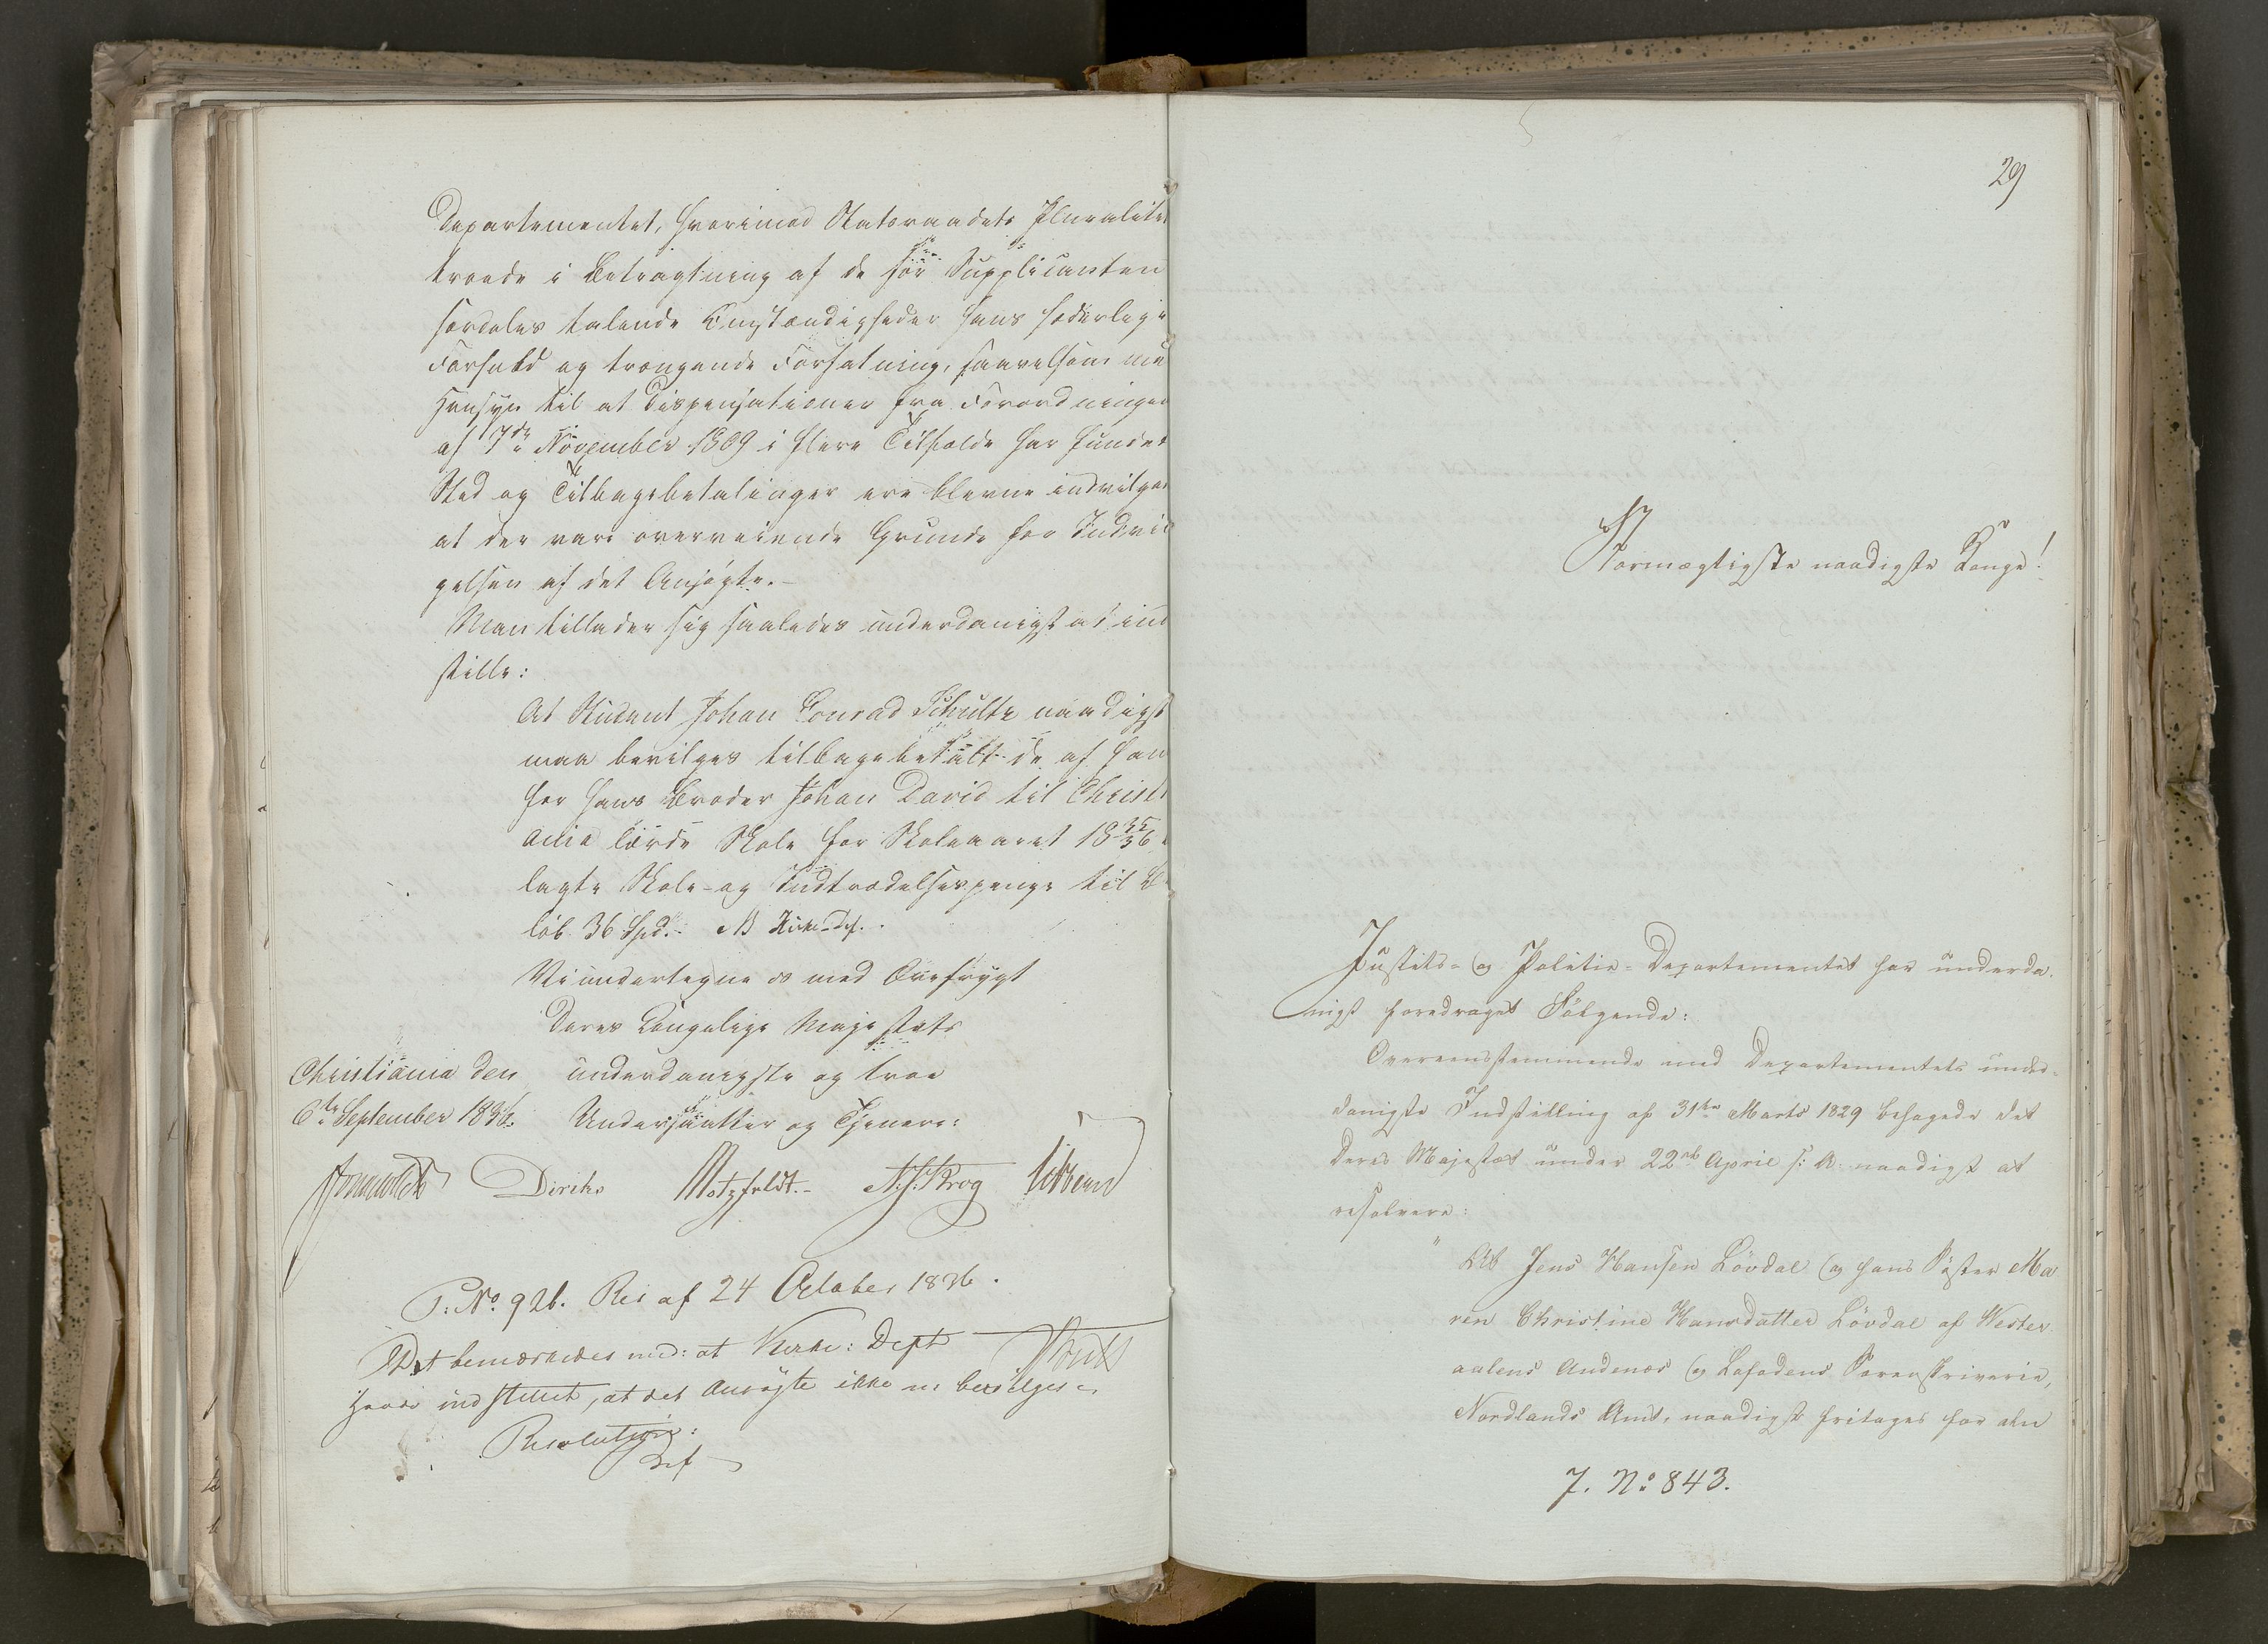 Departementet, hvorimod Statsraadets Pluralitet
troede i Betragtning af de for Supplicanten
særdeles talende Omstændigheder hans hæderlige
Forhold og trængende Forfatning, saavelsom med
Hensyn til at Dispensationer fra Forordningen
af 7de November 1809 i flere Tilfælde har fundet
Sted og Tilbagebetalinger ere blevne indvilgede
at der vare overveiende Grunde for Indvil
gelsen af det Ansøgte.-
Man tillader sig saaledes underdanigst at ind
stille:
At Student Johan Conrad Schultz naadigst
maa bevilges tilbagebetalt de af ham
for hans Broder Johan David til Christi
ania lærde Skole for Skoleaaret 18 35/36
lagte Skole- og Indtrædelsespenge til Be
løb 36 Spd.
Vi undertegne os med Ærefrygt
Deres Kongelige Majestæts
Christiania den underdanigste og troe
6te September 1836. Undersaatter og Tjenere:
Diriks Motzfeldt.- Krog
P: No. 926. Res af 24 October 1836.
Det bemærkedes at Kirke: Dept
Havde indstillet, at det Ansøgte ikke bevilges
Resolution:
29
Stormægtigste naadigste Konge!
Justits- og Politie-Departementet har underda-
nigst foredraget Følgende:
Overeensstemmende med Departementets under-
danigste Indstilling af 31te Marts 1829 behagede det
Deres Majestæt under 22de April s: A: naadigst at
resolvere:
" At Jens Hansen Lövdal og hans Søster Ma
ren Christine Hansdatter Lövdal af Wester
aalens Andenæs og Lofodens Sorenskriverie,
Nordlands Amt, naadigst fritages for den
J. No 843.